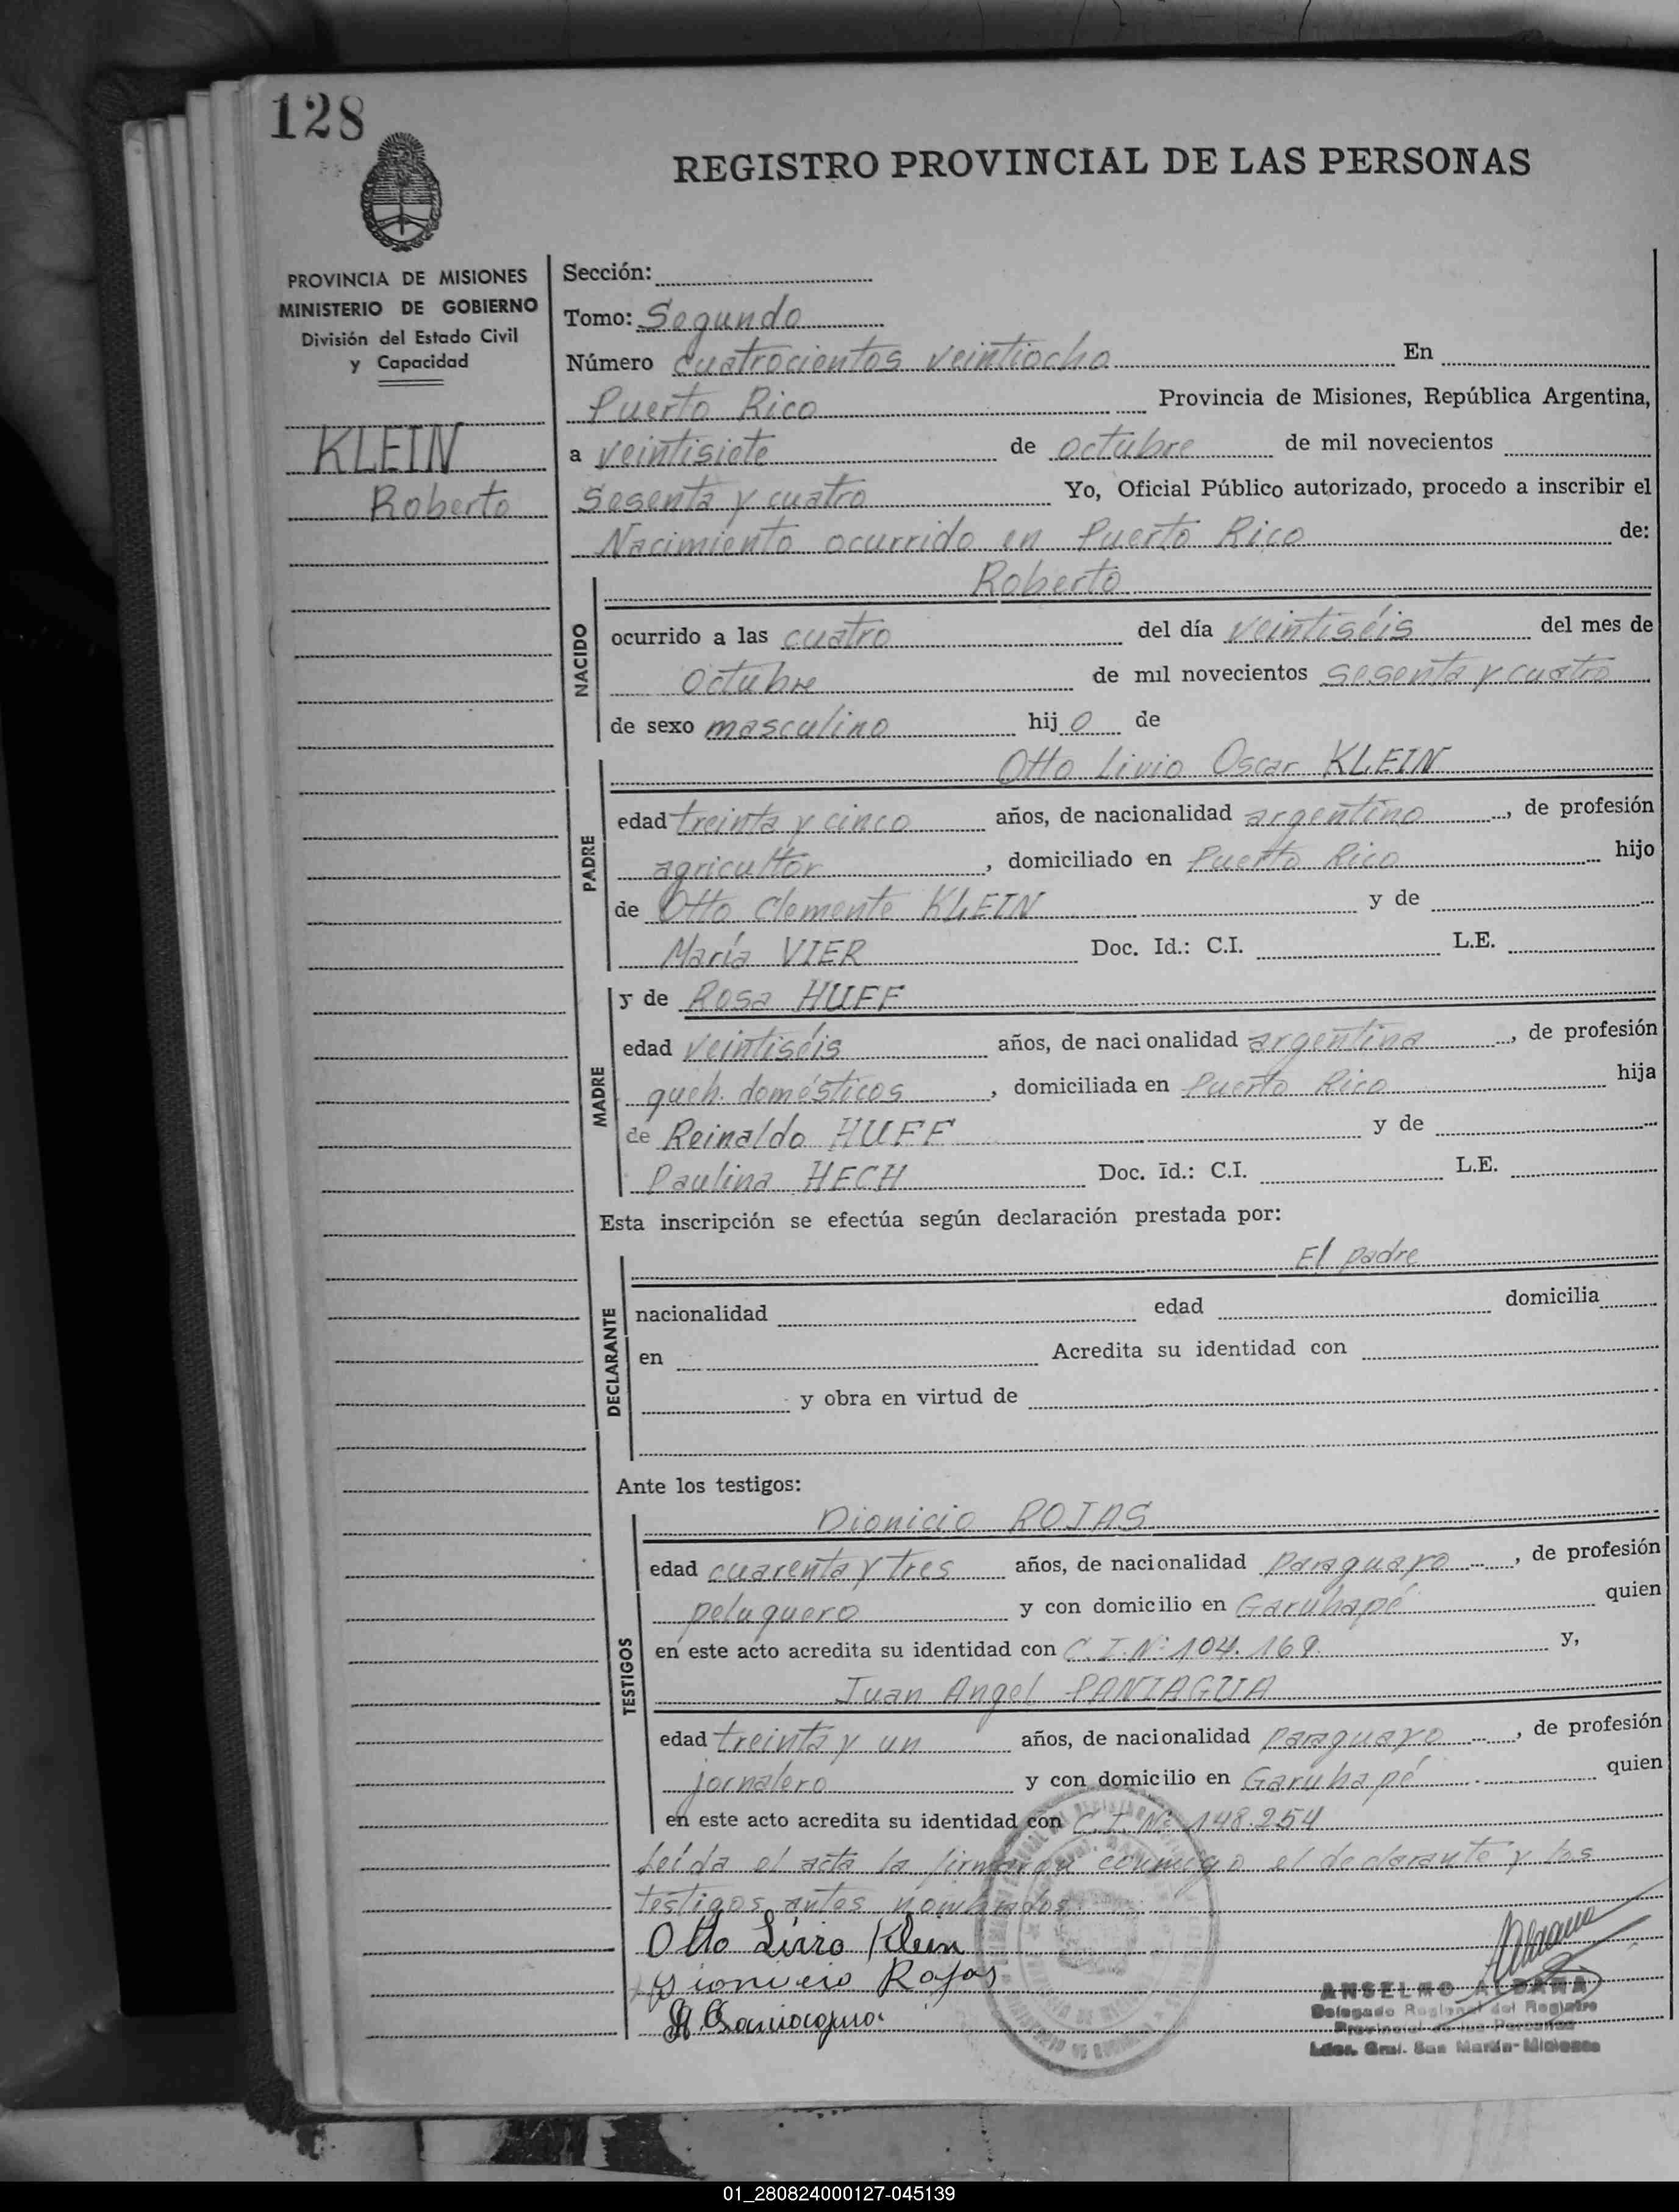 128
REGISTRO PROVINCIAL DE LAS PERSONAS
PROVINCIA DE MISIONES
MINISTERIO DE GOBIERNO
División del Estado Civil
y Capacidad
KLEIN
Roberto
Sección:
Tomo: Segundo
Número cuatrocientos veintiocho En
Puerto Rico Provincia de Misiones, República Argentina,
a veintisiete de octubre de mil novecientos
Sesenta y cuatro Yo, Oficial Público autorizado, procedo a inscribir el
Nacimiento ocurrido en Puerto Rico de:
NACIDO
Roberto
ocurrido a las cuatro del día veintiséis del mes de
octubre de mil novecientos sesenta y cuatro
de sexo masculino hijo de
PADRE
Otto Livio Oscar KLEIN
edad treinta y cinco años, de nacionalidad argentino, de profesión
agricultor, domiciliado en Puerto Rico hijo
de Otto Clemente KLEIN y de
María VIER Doc. Id.: C.I. L.E.
MADRE
y de Rosa HUFF
edad veintiséis años, de nacionalidad argentina, de profesión
queh. domésticos, domiciliada en Puerto Rico hija
de Reinaldo HUFF y de
Paulina HECH Doc. Id.: C.I. L.E.
Esta inscripción se efectúa según declaración prestada por:
DECLARANTE
El padre
nacionalidad edad domicilia
en Acredita su identidad con
y obra en virtud de
Ante los testigos:
TESTIGOS
Dionicio ROJAS
edad cuarenta y tres años, de nacionalidad paraguayo, de profesión
peluquero y con domicilio en Garuhapé quien
en este acto acredita su identidad con C.I.Nº 104.169 y,
Juan Angel PANIAGUA
edad treinta y un años, de nacionalidad paraguayo, de profesión
jornalero y con domicilio en Garuhapé quien
en este acto acredita su identidad con C.I.Nº 148.254
Leída el acta la firmaron conmigo el declarante y los
testigos antes nombrados
Otto Livio Klein
Dionicio Rojas
ANSELMO ALDANA
Delegado Regional del Registro
Provincial de las Personas
Ldor. Gral. San Martín-Misiones
01_280824000127-045139